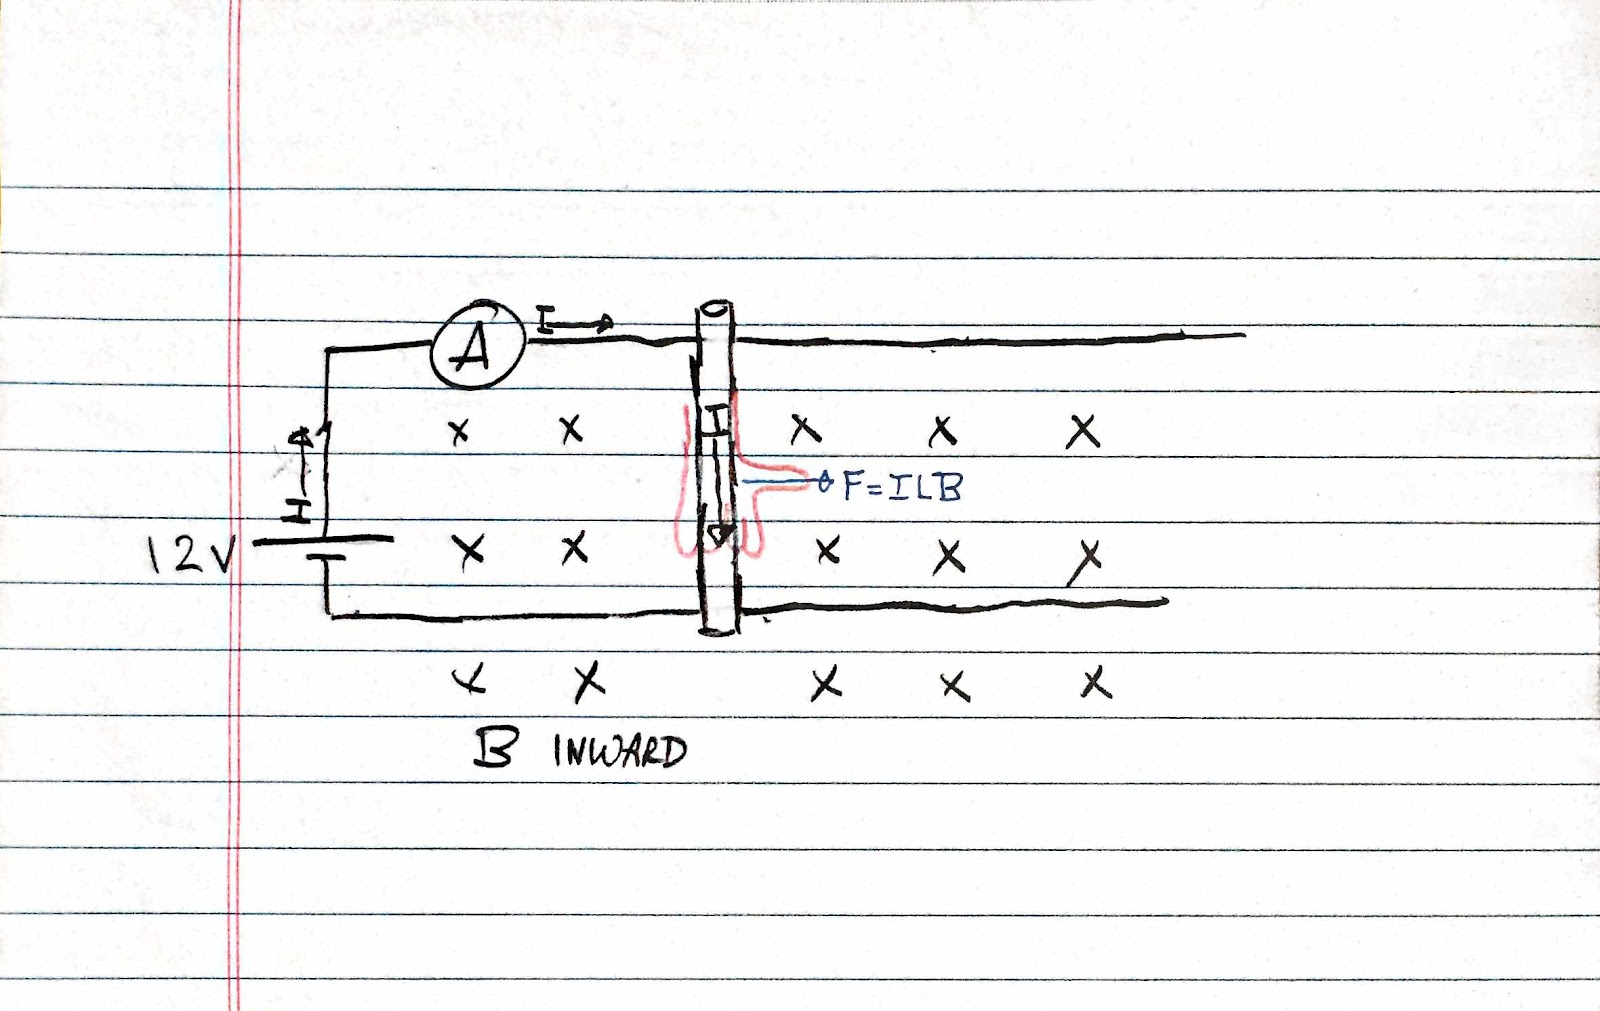 A
I
I
I
F=ILB
12V
B INWARD